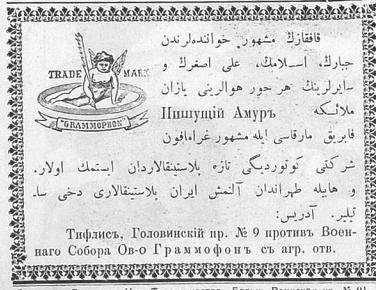 قافقازڭ مشهور خواننده‌لرندن
جبارڭ، اسلامڭ، علی اصغرڭ و
سایرلرینڭ هر جور هوالرینی یازان
TRADE MARK
ملائکه Пишущій Амуръ
"GRAMMOPHON"
فابریق مارقاسی ایله مشهور غراموفون
شرکتی کوتوردیگی تازه پلاستینقالاردان ایستمك اولار.
و هابله طهراندان آلنمش ایران پلاستینقالاری دخی سا-
تیلیر. آدریس:
Тифлисъ, Головинскій пр. № 9 противъ Воен-
наго Собора Ов-о Граммофонъ съ агр. отв.